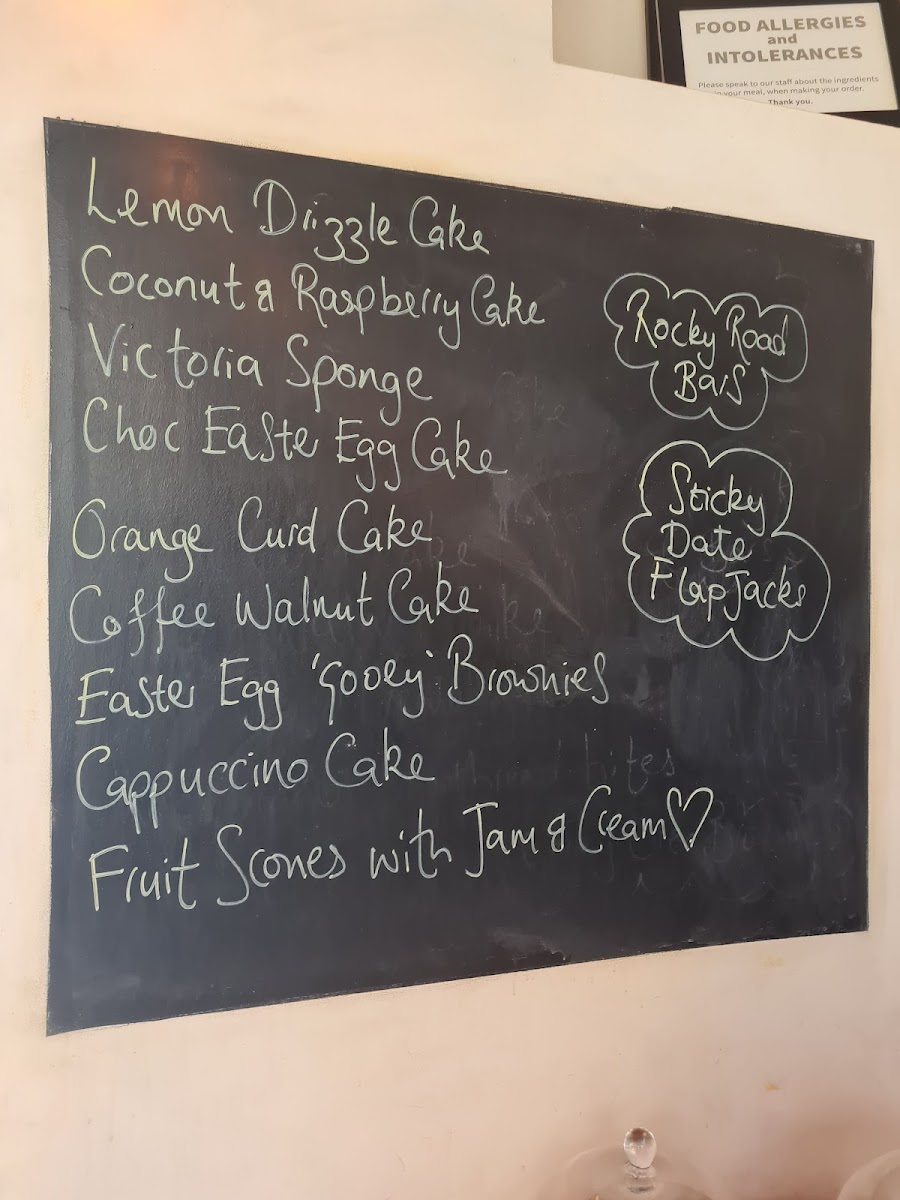 FOOD ALLERGIES
and
INTOLERANCES
Please speak to our staff about the ingredients
in your meal, when making your order.
Thank you.
Lemon Drizzle Cake
Coconut & Raspberry Cake
Victoria Sponge
Choc Easter Egg Cake
Orange Curd Cake
Coffee Walnut Cake
Easter Egg 'Gooey' Brownies
Cappuccino Cake
Fruit Scones with Jam & Cream♡
Rocky Road
Bars
Sticky
Date
FlapJacks